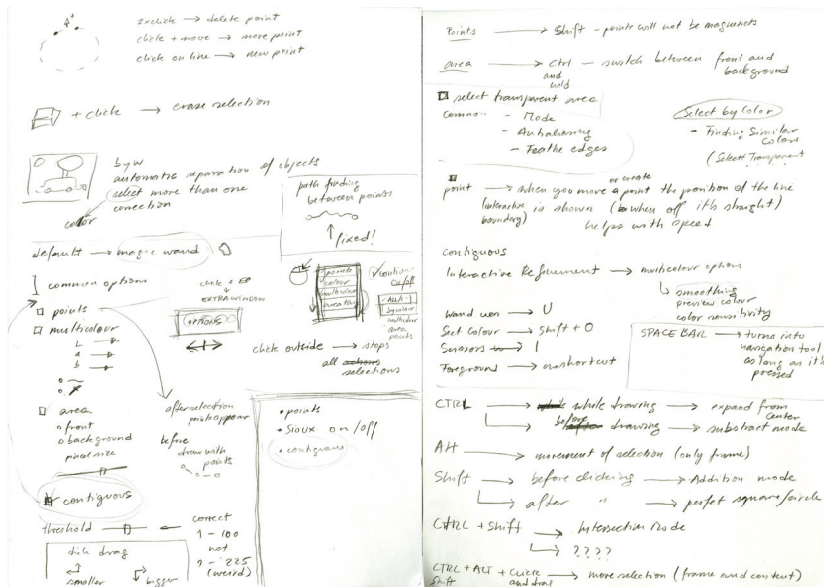 2x click → delete point
click + move → move point
click on line → new point
+ click → erase selection
by w
automatic separation of objects
select more than one
conection
color
path finding
between points
fixed!
default → magic wand
common options
click +
EXTRA WINDOW
OPTIONS
points
multicolour
L
a
b
click outside → stops
all selections
area
front
background
pixel size
after selection
points appear
before
draw with
points
• points
• Sioux on/off
• contiguous
contiguous
threshold
correct
1 - 100
not
? - 225
(weird)
click drag
smaller
bigger
Points → Shift - points will not be magnets
area → Ctrl - switch between front and
and background
hold
select transparent area
Common - Mode
- Antialiasing
- Feathe edges
Select by Color
- Finding Similar
Colors
(Select Transparent
or create
point → when you move a point the position of the line
(interactive is shown (when off it's straight)
boundary) helps with speed
contiguous
Interactive Refinement → multicolour option
↳ smoothing
preview colour
color sensitivity
Wand → U
Sect Colour → Shift + O
Scissors → I
Foreground → no shortcut
SPACE BAR → turns into
navigation tool
as long as it's
pressed
CTRL → while drawing → expand from
center
↳ before drawing → substract mode
Alt → movement of selection (only frame)
Shift → before clicking → Addition mode
↳ after " → perfet square/circle
CTRL + Shift → Intersection Mode
↳ ????
CTRL + ALT + Click → move selection (frame and content)
Shift and drag